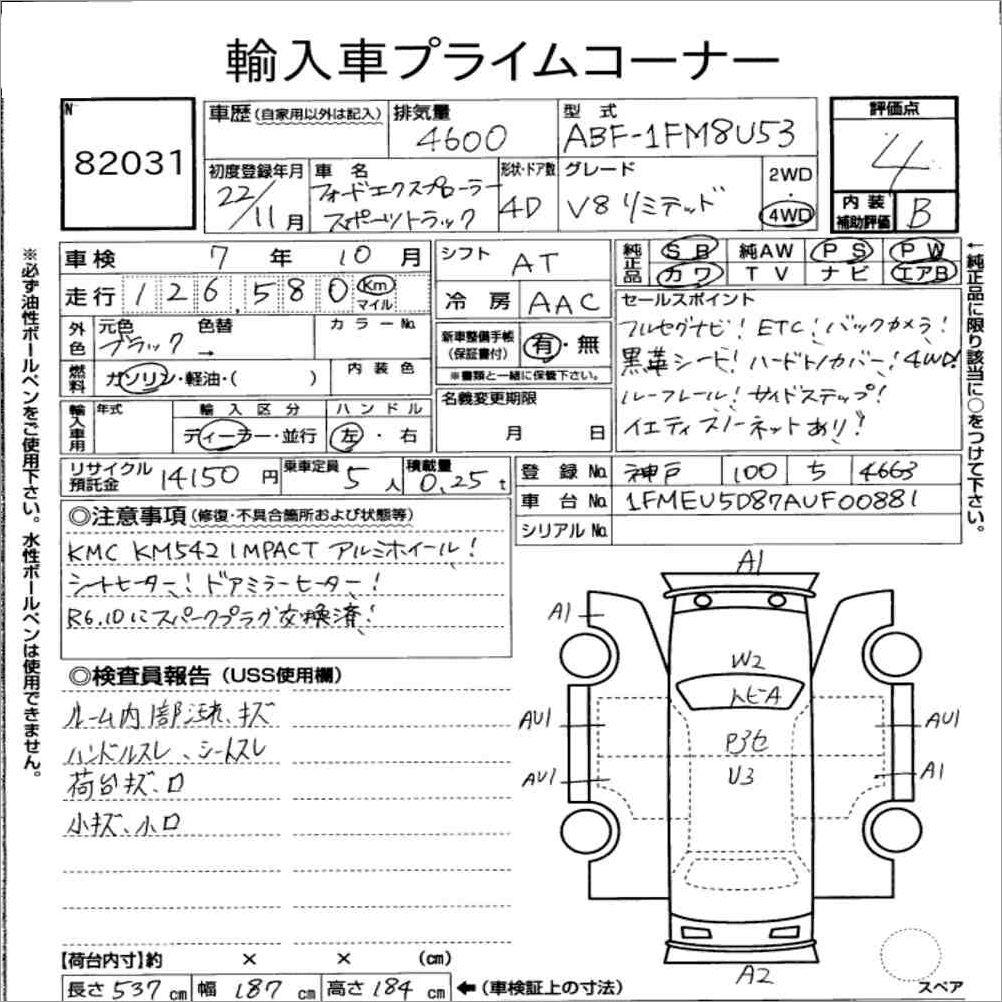 輸入車プライムコーナー
N 82031
車歴 (自家用以外は記入)
排気量 4600
型式 ABF-1FM8U53
評価点 4
内装補助評価 B
初度登録年月 22/11月
車名 フォードエクスプローラースポーツトラック
形状・ドア数 4D
グレード V8 リミテッド
2WD
4WD
車検 7年 10月
走行 126,580 Km マイル
外色 元色 ブラック 色替 → カラーNo.
燃料 ガソリン・軽油・( ) 内装色
輸入車用 年式 輸入区分 ディーラー・並行 ハンドル 左・右
シフト AT
冷房 AAC
新車整備手帳(保証書付) 有・無
※書類と一緒に保管下さい。
名義変更期限 月 日
純正品 SB 純AW PS PW
カワ TV ナビ エアB
セールスポイント
フルセグナビ! ETC! バックカメラ!
黒革シート! ハードトノカバー! 4WD!
ルーフレール! サイドステップ!
イエティスノーネットあり!
←純正品に限り該当に○をつけて下さい。
※必ず油性ボールペンをご使用下さい。水性ボールペンは使用できません。
リサイクル預託金 14150円
乗車定員 5人
積載量 0.25t
登録No. 神戸 100 ち 4663
車台No. 1FMEU5D87AUF00881
シリアルNo.
◎注意事項 (修復・不具合箇所および状態等)
KMC KM542 IMPACT アルミホイール!
シートヒーター! ドアミラーヒーター!
R6.10にスパークプラグ交換済!
◎検査員報告 (USS使用欄)
ルーム内1部汚れ、キズ
ハンドルスレ、シートスレ
荷台キズ、ロ
小キズ、小ロ
A1
A1
W2
トビーA
AU1
AU1
P3セ
U3
AU1
A1
A2
スペア
【荷台内寸】約 × × (cm)
長さ 537 cm 幅 187 cm 高さ 184 cm ←(車検証上の寸法)